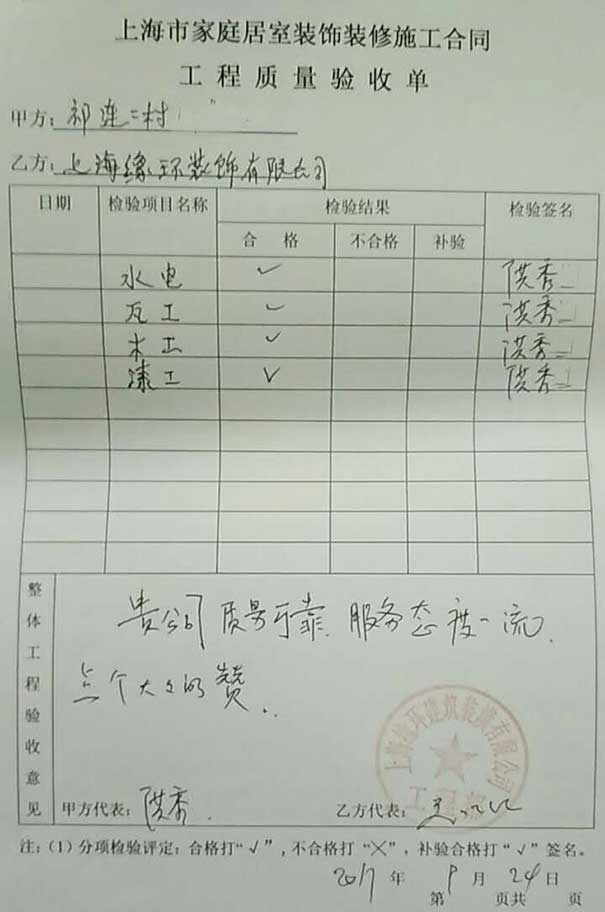 上海市家庭居室装饰装修施工合同
工程质量验收单
甲方：祁连二村
乙方：上海缘环装饰有限公司
日期 检验项目名称 检验结果 检验签名
合格 不合格 补验
水电 ✓ 洪秀
瓦工 ✓ 洪秀
木工 ✓ 洪秀
漆工 ✓ 洪秀
整体工程验收意见
贵公司质量可靠.服务态度一流.
点个大大的赞..
甲方代表：洪秀.
乙方代表：
注：(1)分项检验评定：合格打“√”,不合格打“╳”,补验合格打“√”签名。
2017年9月24日
第 页共 页